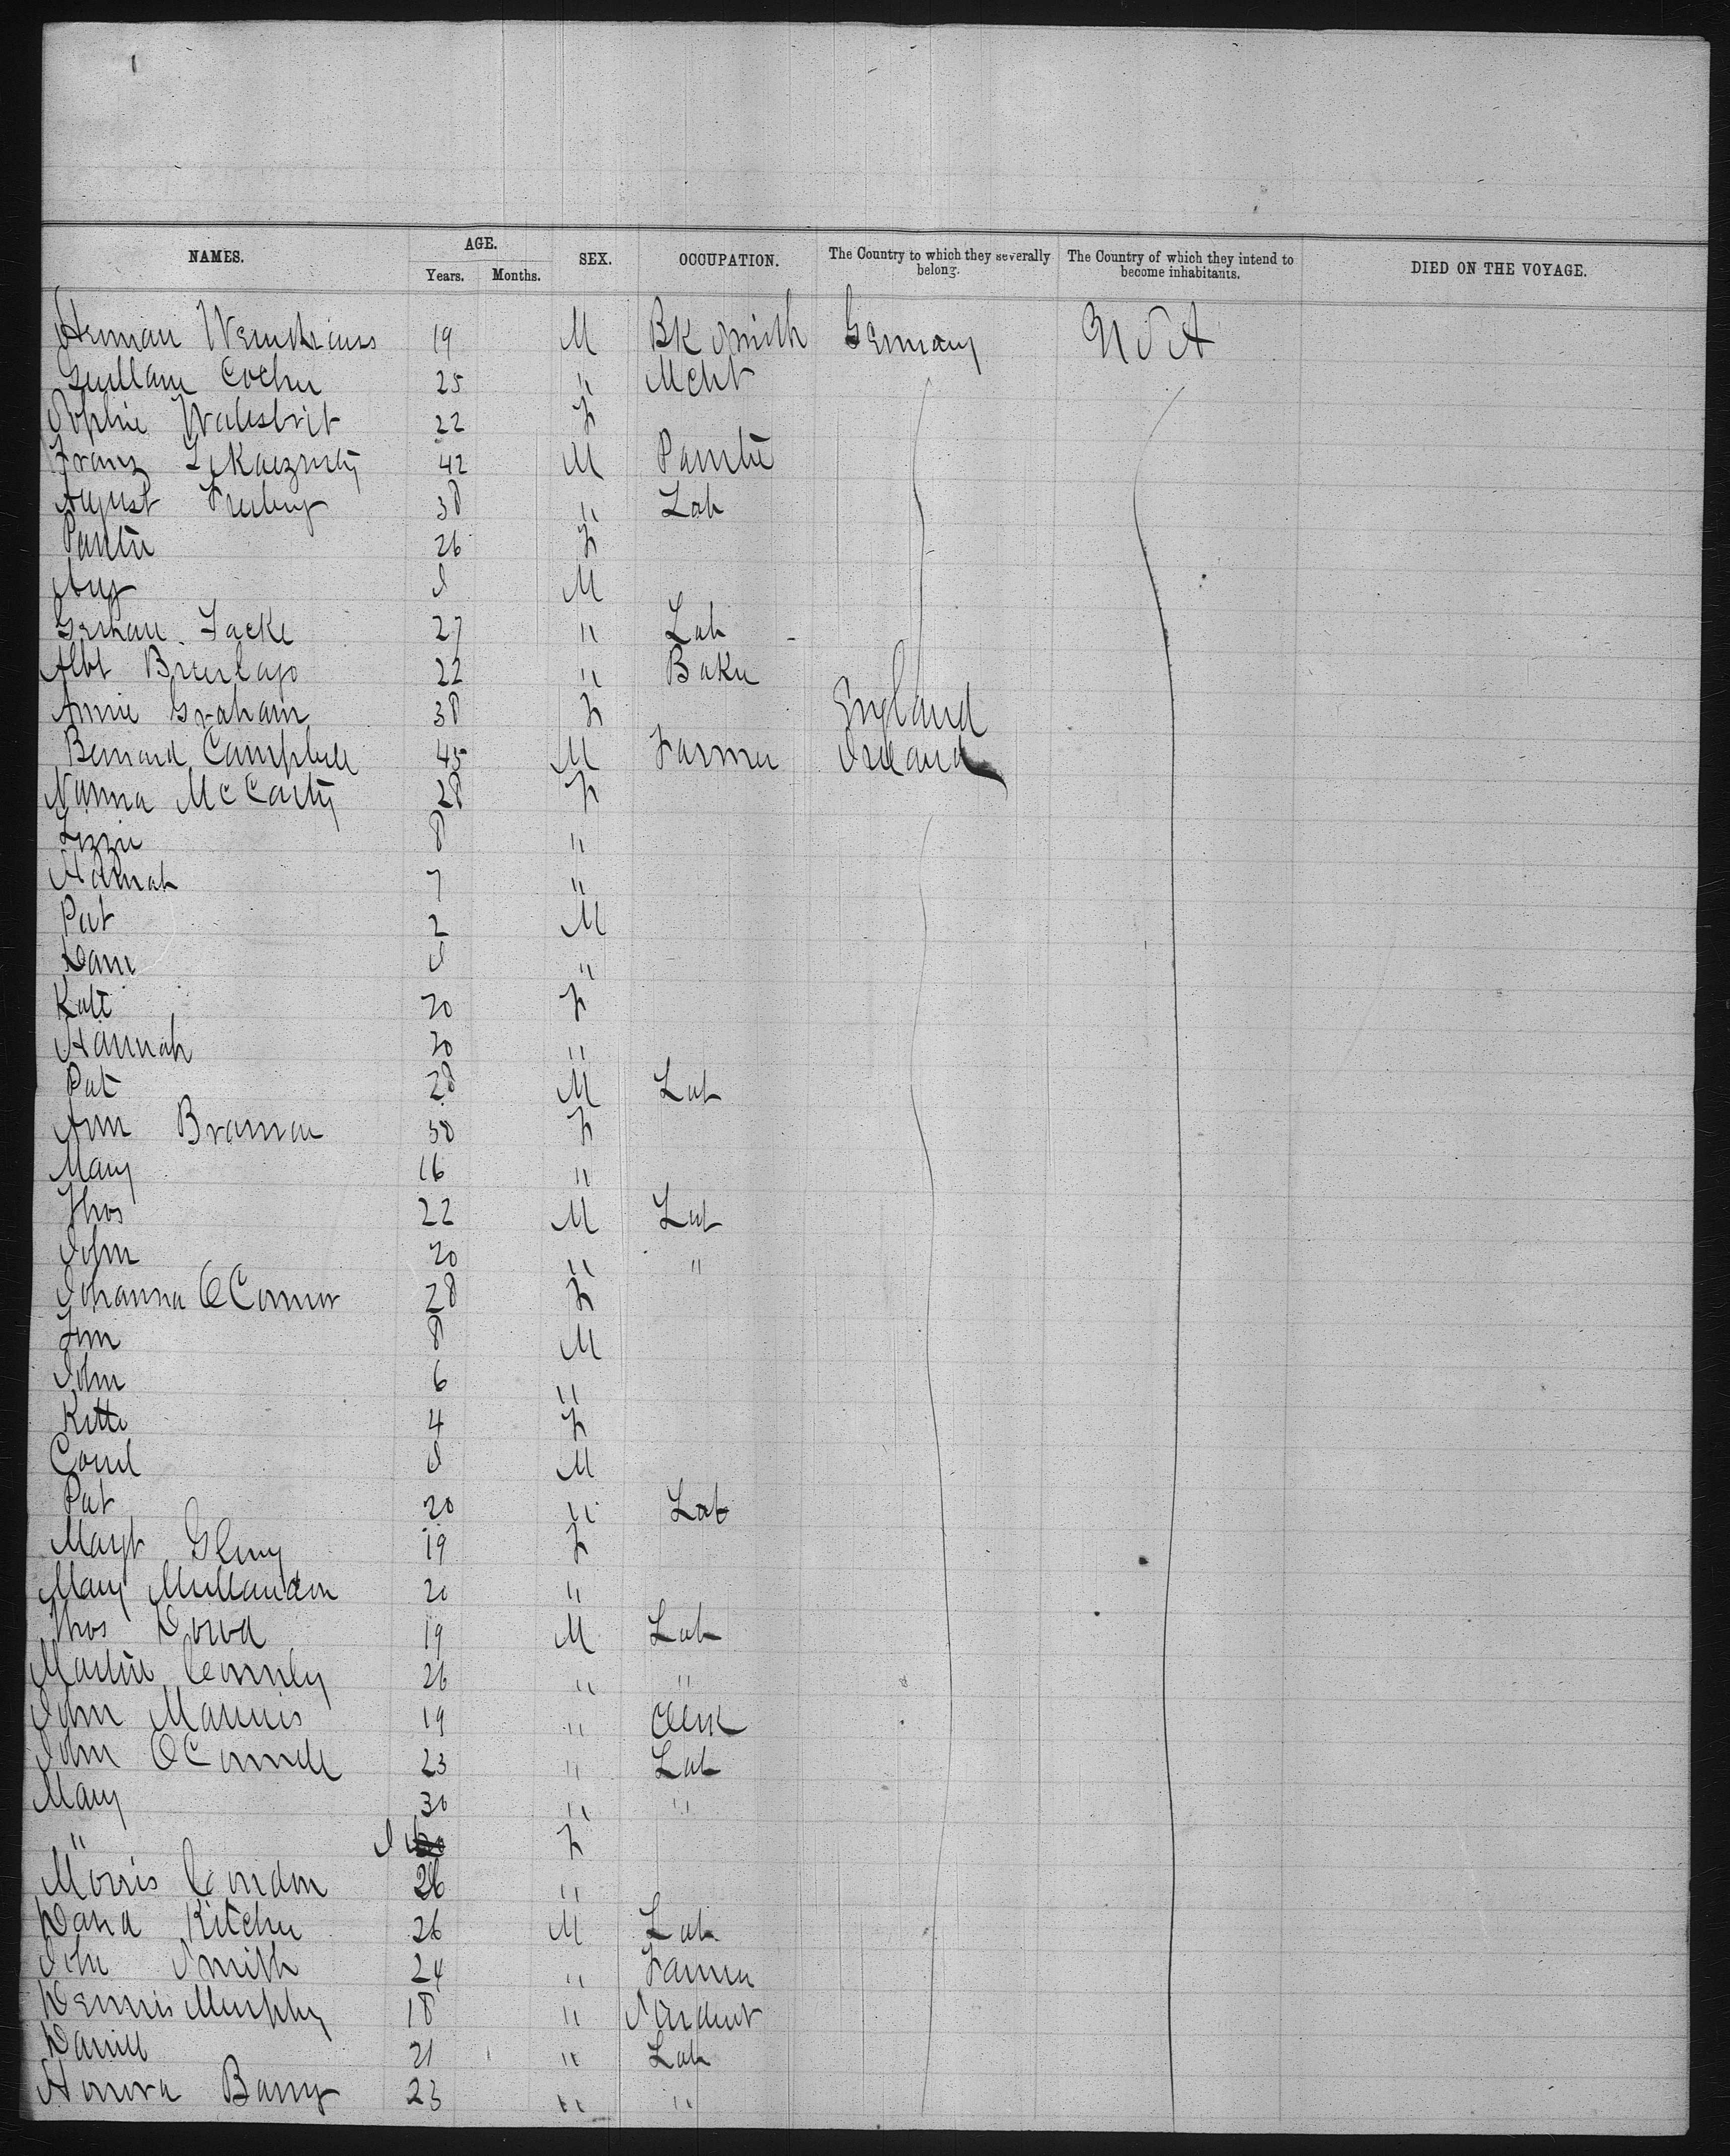 NAMES. AGE. Years. Months. SEX. OCCUPATION. The Country to which they severally belong. The Country of which they intend to become inhabitants. DIED ON THE VOYAGE.
Herman 19 M Bk Smith Germany U S A
25 " Mcht
Sophie 22 F
Franz 42 M
August 38 " Lab
26 F
Aug M
27 " Lab
Albt 22 " Baker
Annie Graham 38 F England
Bernard Campbell 45 M Farmer Ireland
Nanna McCarty 28 F
Lizzie 8 "
Hannah 7 "
Pat 2 M
Dani "
Kate 20 F
Hannah 20 "
Pat 28 M Lab
Ann Brannan 50 F
Mary 16 "
Thos 22 M Lab
John 20 " "
Johanna O'Connor 28 F
Jim 8 M
John 6 "
Kitte 4 F
Cornl M
Pat 20 " Lab
Margt 19 F
Mary 20 "
Thos Dowd 19 M Lab
Martin 26 " "
John Mannis 19 " Clerk
John O'Connell 23 " Lab
Mary 30 " "
" F
Morris Condon 26 "
David 26 M Lab
John Smith 24 " Farmer
Dennis Murphy 18 " Student
Daniel 21 " Lab
Honora Barry 23 " "